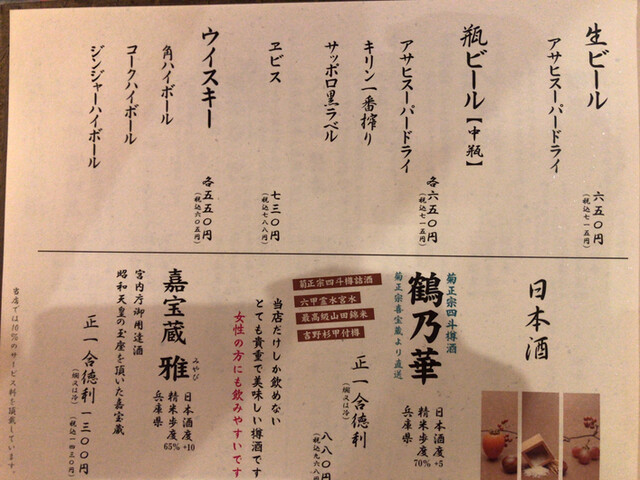 生ビール
アサヒスーパードライ
六五〇円
(税込七一五円)
瓶ビール【中瓶】
アサヒスーパードライ
キリン一番搾り
サッポロ黒ラベル
各六五〇円
(税込七一五円)
ヱビス
七三〇円
(税込七八八円)
ウイスキー
角ハイボール
コークハイボール
ジンジャーハイボール
各五五〇円
(税込六〇五円)
日本酒
菊正宗四斗樽酒
鶴乃華
菊正宗嘉宝蔵より直送
日本酒度 +5
精米歩度 70%
兵庫県
正一合徳利
(燗又は冷)
八八〇円
(税込九六八円)
菊正宗四斗樽詰酒
六甲霊水宮水
最高級山田錦米
吉野杉甲付樽
当店だけしか飲めない
とても貴重で美味しい樽酒です
女性の方にも飲みやすいです
嘉宝蔵 雅
みやび
日本酒度 +10
精米歩度 65%
兵庫県
宮内庁御用達酒
昭和天皇の玉座を頂いた嘉宝蔵
正一合徳利
(燗又は冷)
一三〇〇円
(税込一四三〇円)
当店では10%のサービス料を頂戴しています。